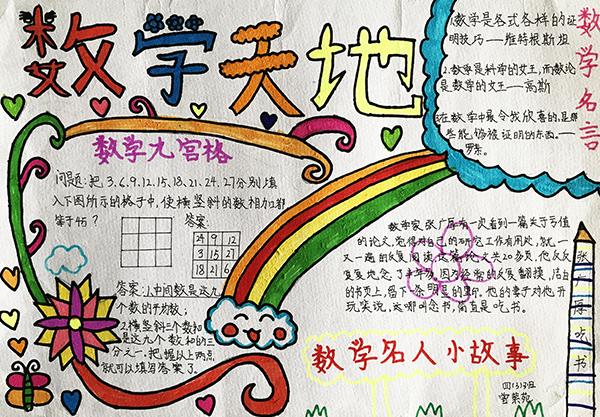 数学天地
数学九宫格
问题:把3.6.9.12.15.18.21.24.27分别填
入下图所示的格子中,使横竖斜的数相加都
等于45?
答案:
24 9 12
3 15 27
18 21 6
答案:1.中间数是这九
个数的平均数;
2.横竖斜三个数和
是这九个数和的三
分之一.把握以上两点
就可以填写答案了.
数学名言
1.数学是各式各样的证
明技巧——维特根斯坦
2.数学是科学的女王,而数论
是数学的女王——高斯
3.在数学中最令我欣喜的,是那
些能够被证明的东西.——
罗素.
数学家张广厚有一次看到一篇关于亏值
的论文,觉得对自己的研究工作有用处,就一
又一遍的反复阅读.这篇论文共20多页,他反反
复复地念了半年多.因为经常的反复翻摸,洁白
的书页上,留下一
明显的黑印.他的妻子对他开
玩笑说,这哪叫念书,简直是吃书.
张广厚吃书
数学名人小故事
四(3)班